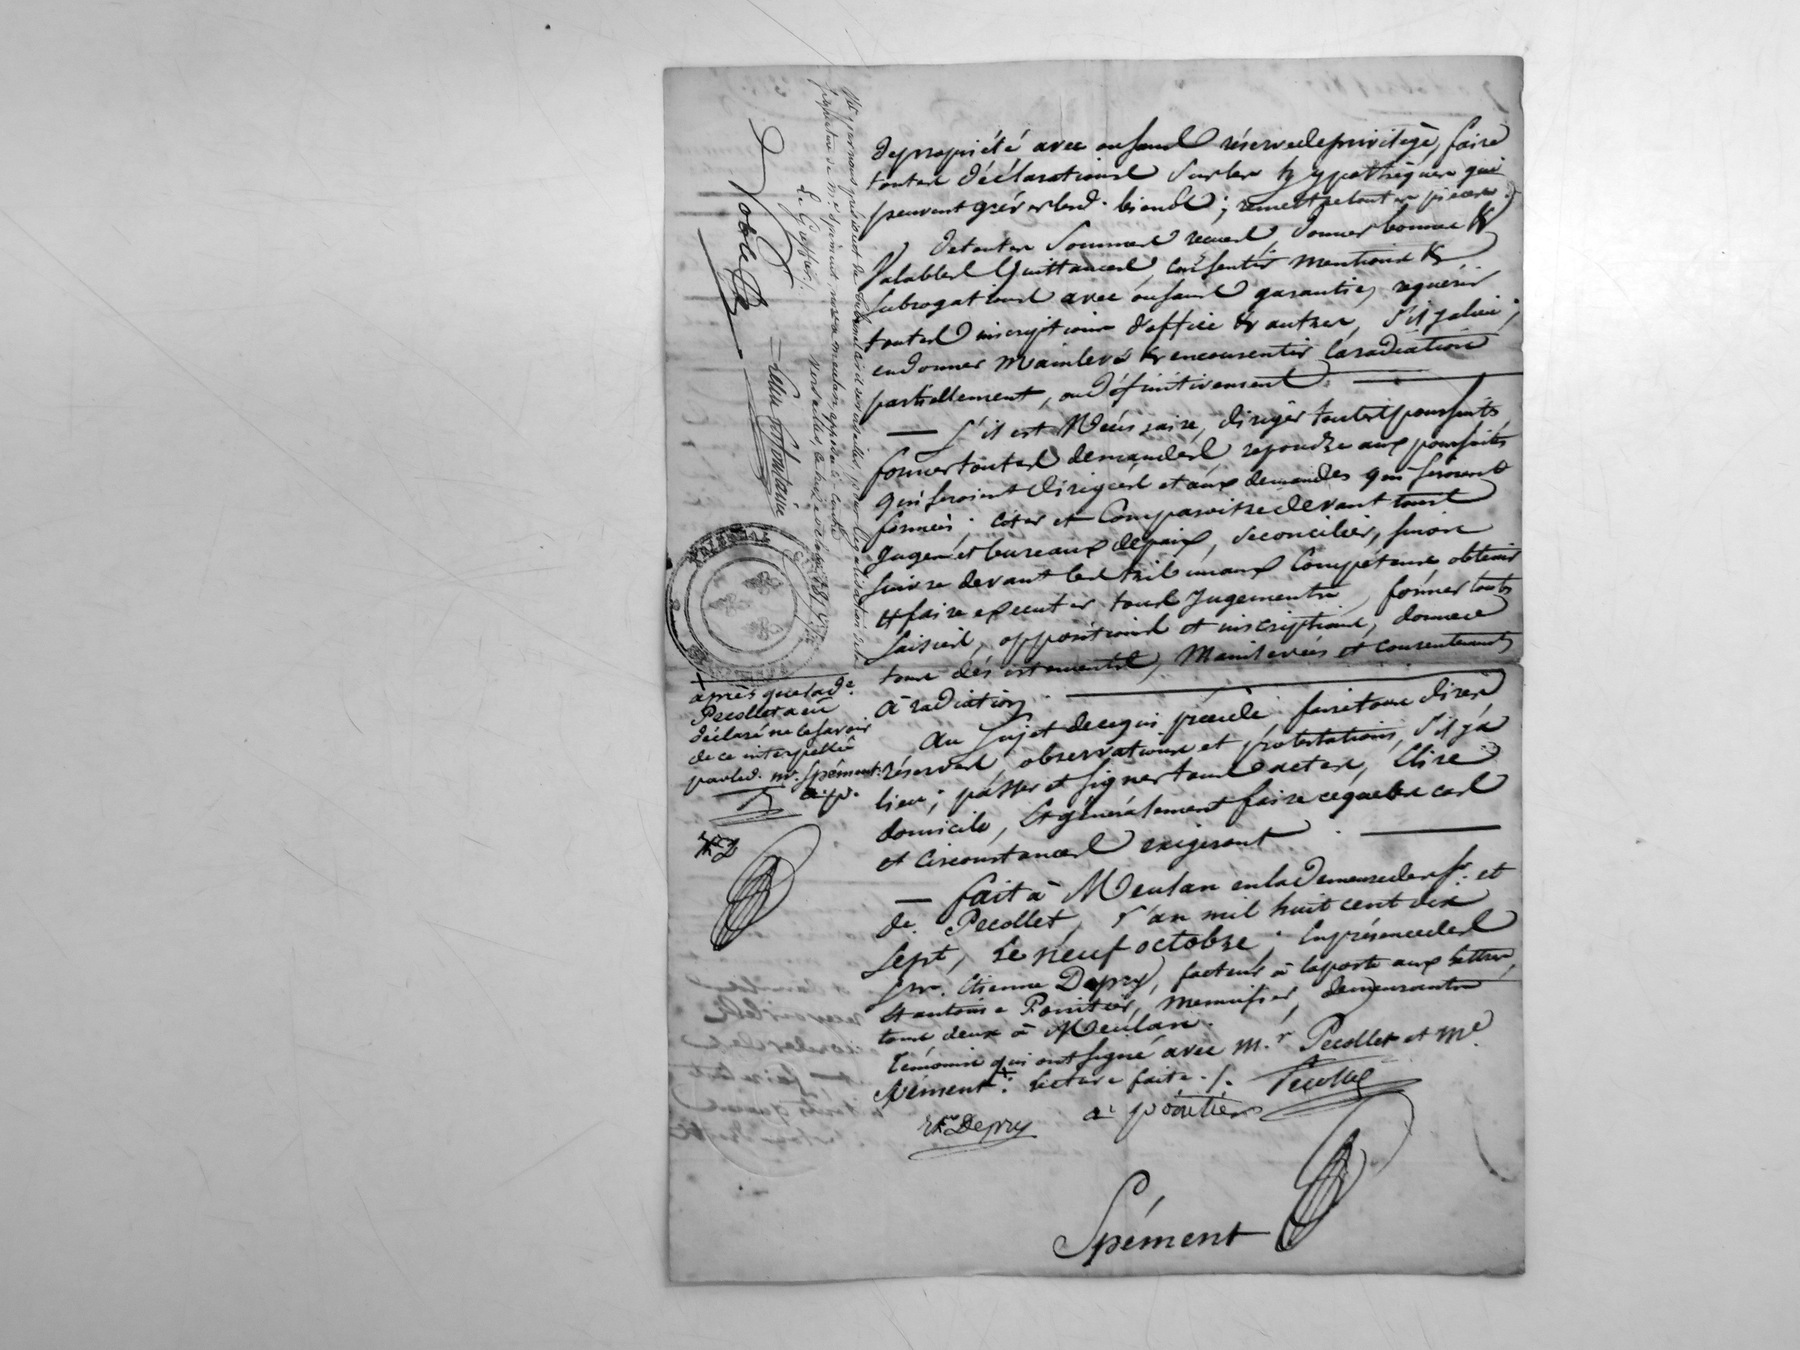 de propriété avec ou sans réserve de privilège, faire
toutes déclarations sur les hypothèques qui
peuvent gréver lesd. biens; remettre toutes pièces
De toutes sommes reçues donner bonnes &
Valables Quittances, consentir mentions &
subrogations avec ou sans garantie, requérir
toutes inscriptions d'office & autres, s'il y a lieu;
en donner mainlevée & en consentir la radiation
partiellement, ou définitivement.
S'il est Nécéssaire, diriger toutes poursuites
former toutes demandes repondre aux poursuites
qui seroient dirigées et aux demandes qui seroient
formées; citer et Comparoitre devant tous
Juges et bureaux de paix, se concilier, sinon
suivre devant les tribunaux Compétens obtenir
et faire executer tous Jugements, former toutes
saisies, oppositions et inscriptions, donner
tous désistements, Mainlevées et consentements
à radiation.
Au Sujet de ce qui précède faire tous dires
réserves, observations et protestations, s'il y a
lieu; passer et signer tous actes, Elire
domicile, Et généralement faire ce que les cas
et circonstances exigeront.
fait à Meulan en la Demeure des Sr. et
de. Pecollet, l'an mil huit cent dix
Sept, Le neuf octobre; En présence des
Srs. Etienne Depry, facteur à la poste aux lettres,
et antoine Pointier, menuisier, demeurants
tous deux à Meulan.
Témoins qui ont signé avec M.r Pecollet et Me.
Spément + lecture faite ./.
Pecollet
Ene Depry
a. pointier
Spément
+
après que lad. de.
Pecollet a eû
déclaré ne le savoir
de ce interpellée
par led. me. Spément
a.p.
Vu par nous président du tribunal civil
signature de Me Spément, notaire à Meulan, apposée ci contre
Versailles
Le Greffier
Noble